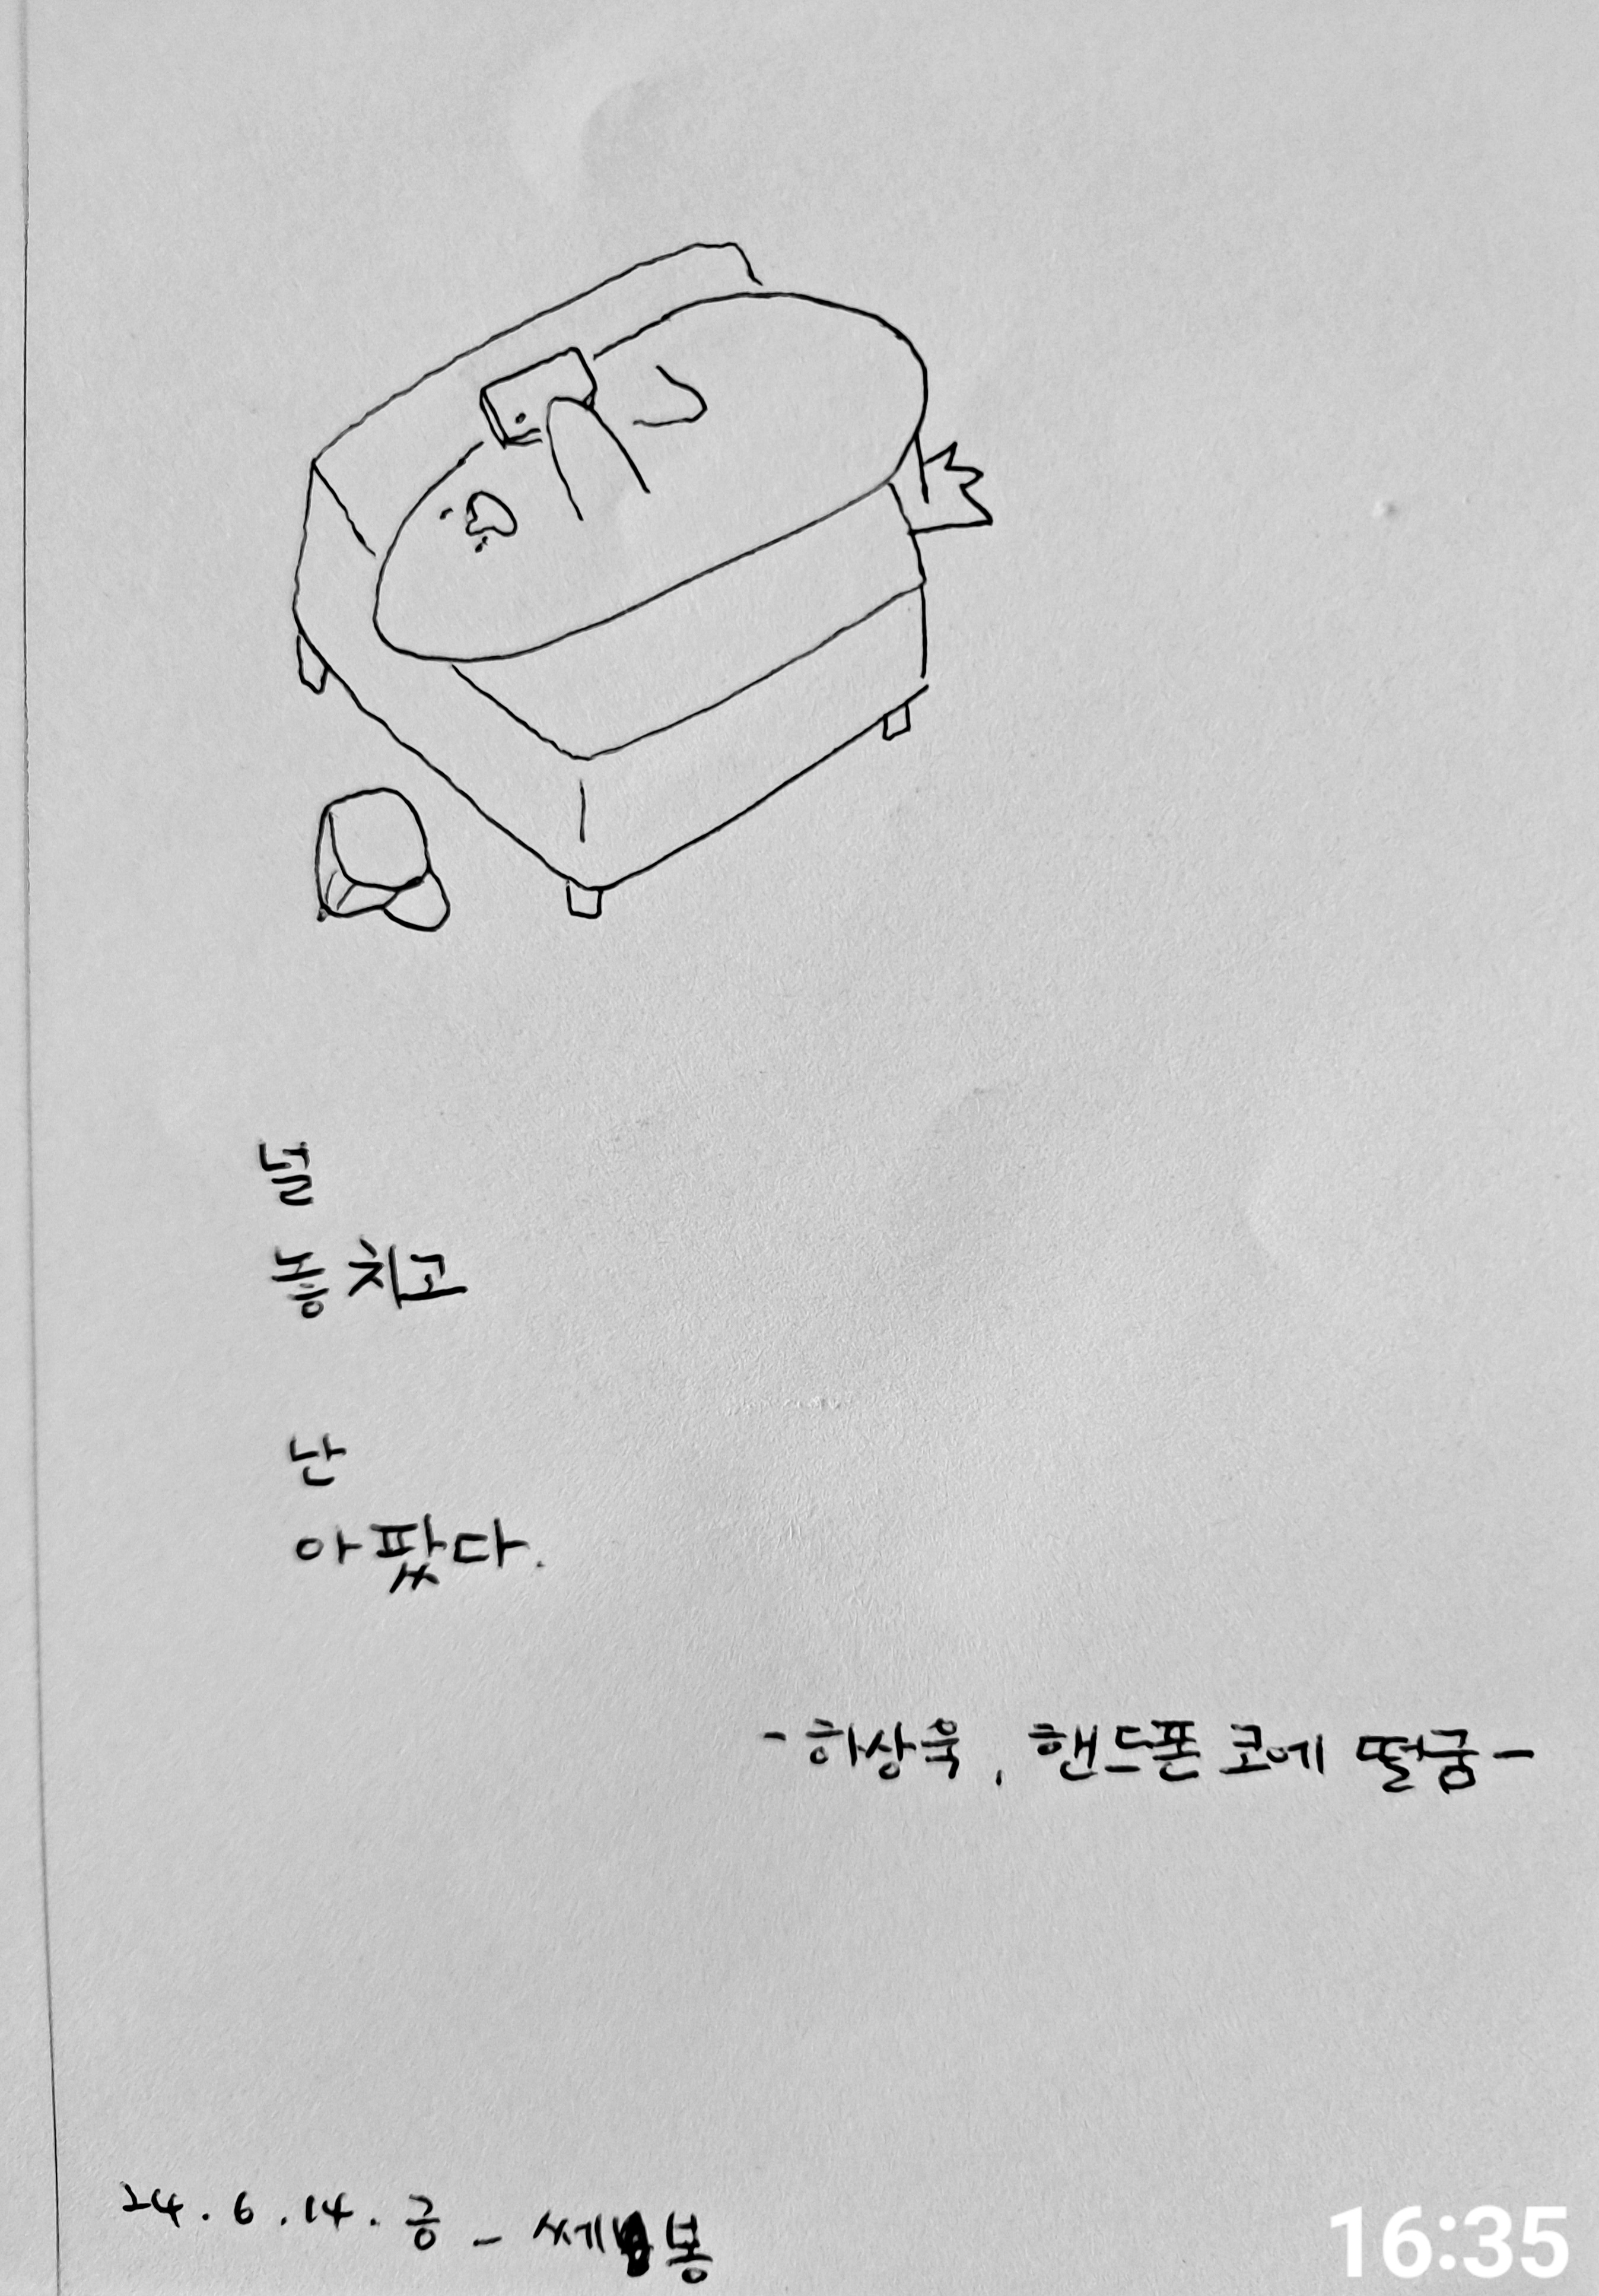 널
놓치고
난
아팠다.
- 하상욱, 핸드폰 코에 떨굼 -
24. 6. 14. 금 - 쎄봉
16:35